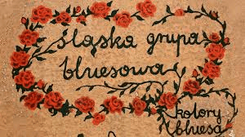 śląska grupa
bluesowa
kolory
bluesa